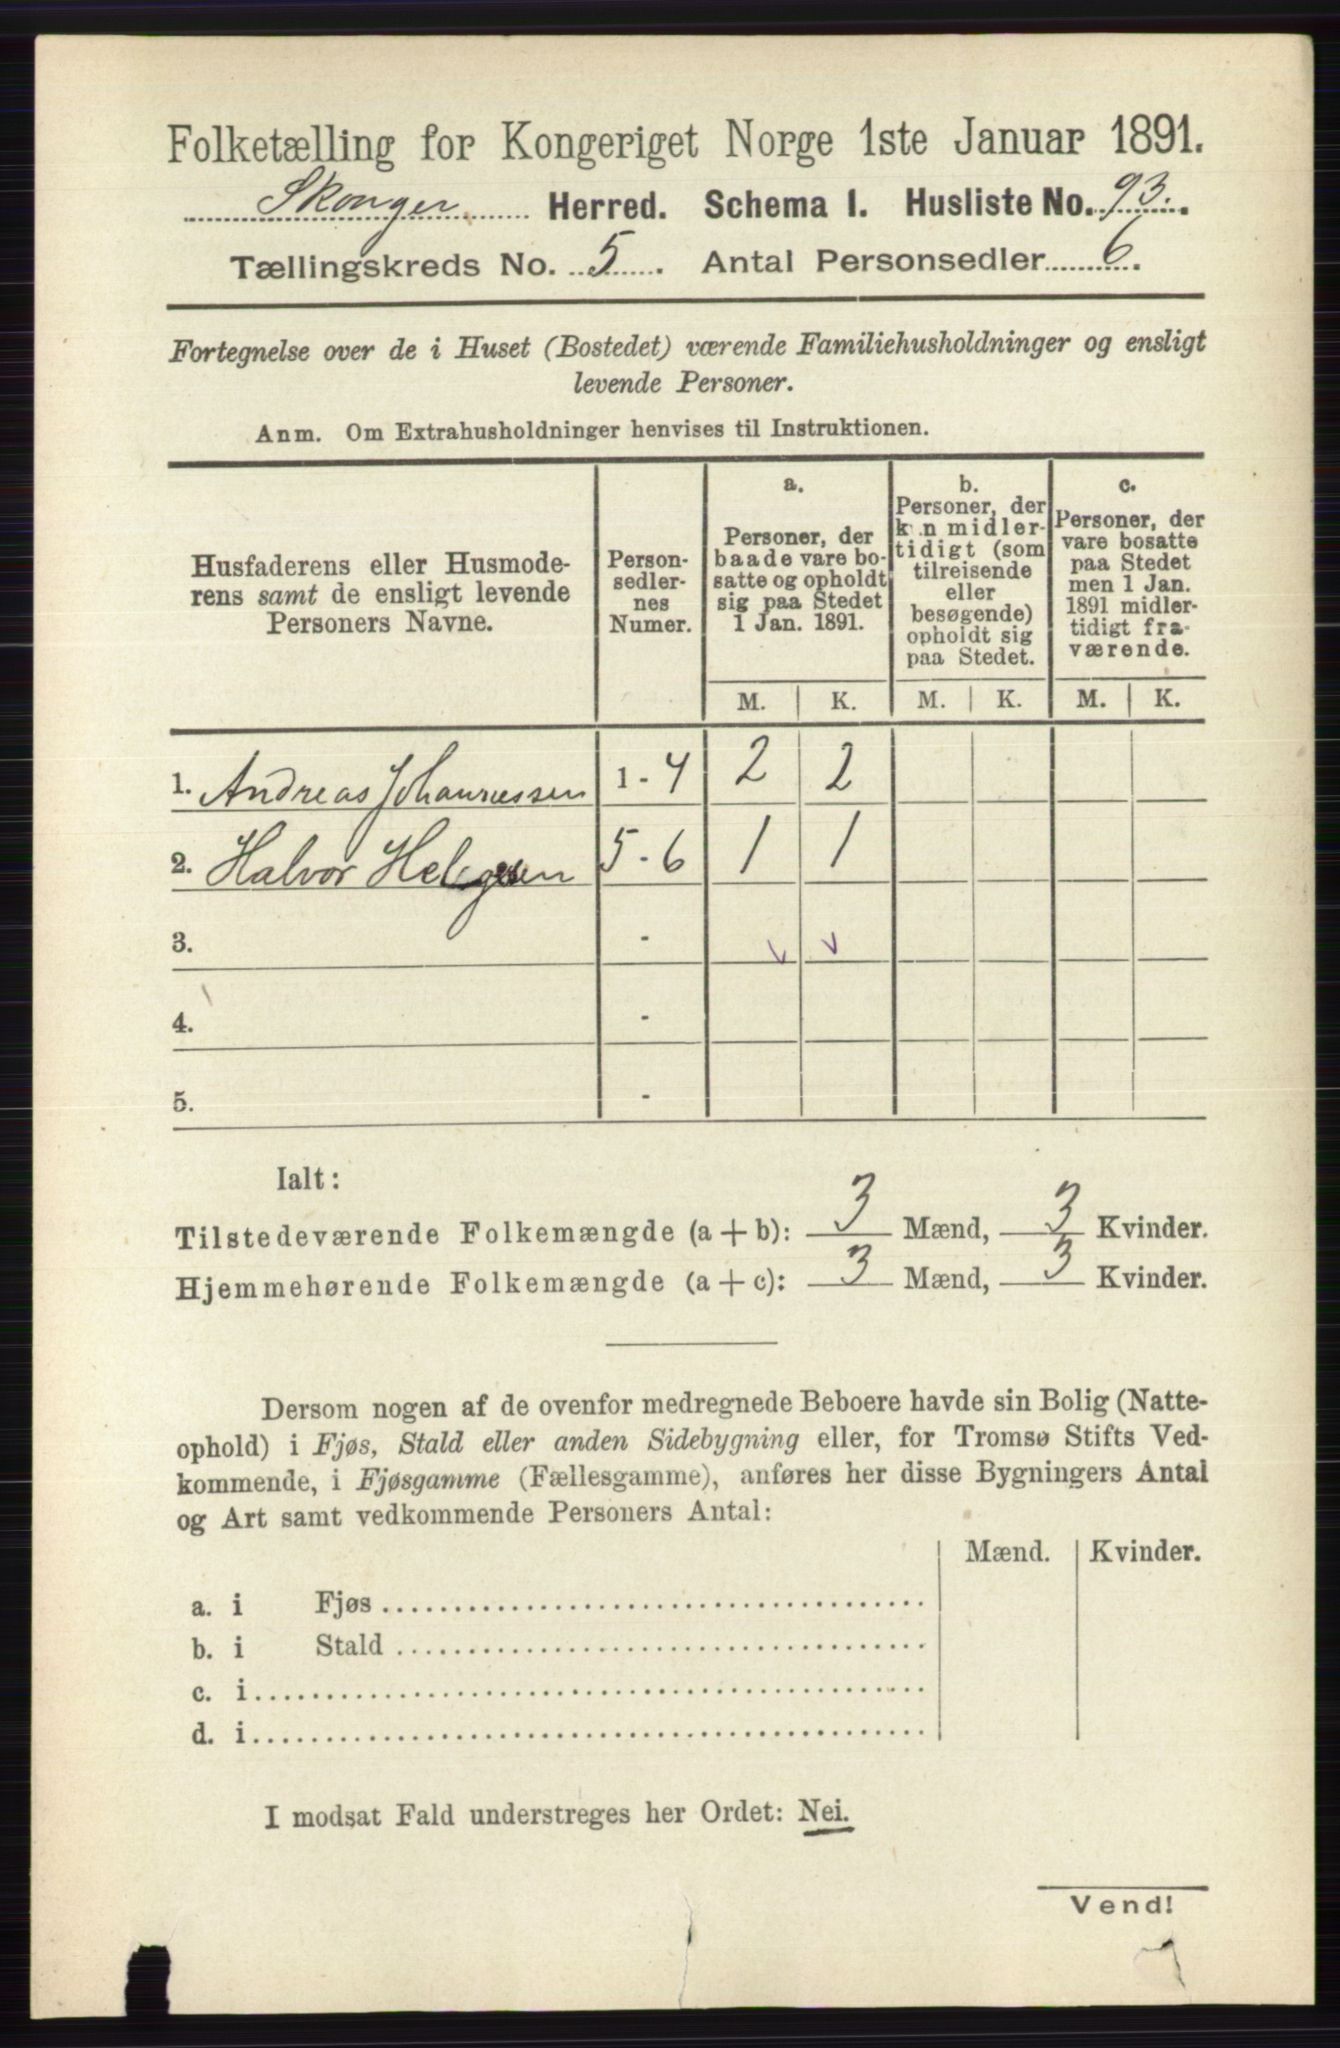 Folketælling for Kongeriget Norge 1ste Januar 1891.
Skouger Herred. Schema I. Husliste No. 93.
Tællingskreds No. 5. Antal Personsedler 6.
Fortegnelse over de i Huset (Bostedet) værende Familiehusholdninger og ensligt
levende Personer.
Anm. Om Extrahusholdninger henvises til Instruktionen.
Husfaderens eller Husmode-
rens samt de ensligt levende
Personers Navne.
Person-
sedler-
nes
Numer.
a.
Personer, der
baade vare bo-
satte og opholdt
sig paa Stedet
1 Jan. 1891.
b.
Personer, der
kun midler-
tidigt (som
tilreisende
eller
besøgende)
opholdt sig
paa Stedet.
c.
Personer, der
vare bosatte
paa Stedet
men 1 Jan.
1891 midler-
tidigt fra-
værende.
M. K. M. K. M. K.
1. Andreas Johannessen 1 - 4 2 2
2. Halvor Helgesen 5 - 6 1 1
3. -
4. -
5. -
Ialt:
Tilstedeværende Folkemængde (a + b): 3 Mænd, 3 Kvinder.
Hjemmehørende Folkemængde (a + c): 3 Mænd, 3 Kvinder.
Dersom nogen af de ovenfor medregnede Beboere havde sin Bolig (Natte-
ophold) i Fjøs, Stald eller anden Sidebygning eller, for Tromsø Stifts Ved-
kommende, i Fjøsgamme (Fællesgamme), anføres her disse Bygningers Antal
og Art samt vedkommende Personers Antal:
Mænd. Kvinder.
a. i Fjøs
b. i Stald
c. i
d. i
I modsat Fald understreges her Ordet: Nei.
Vend!